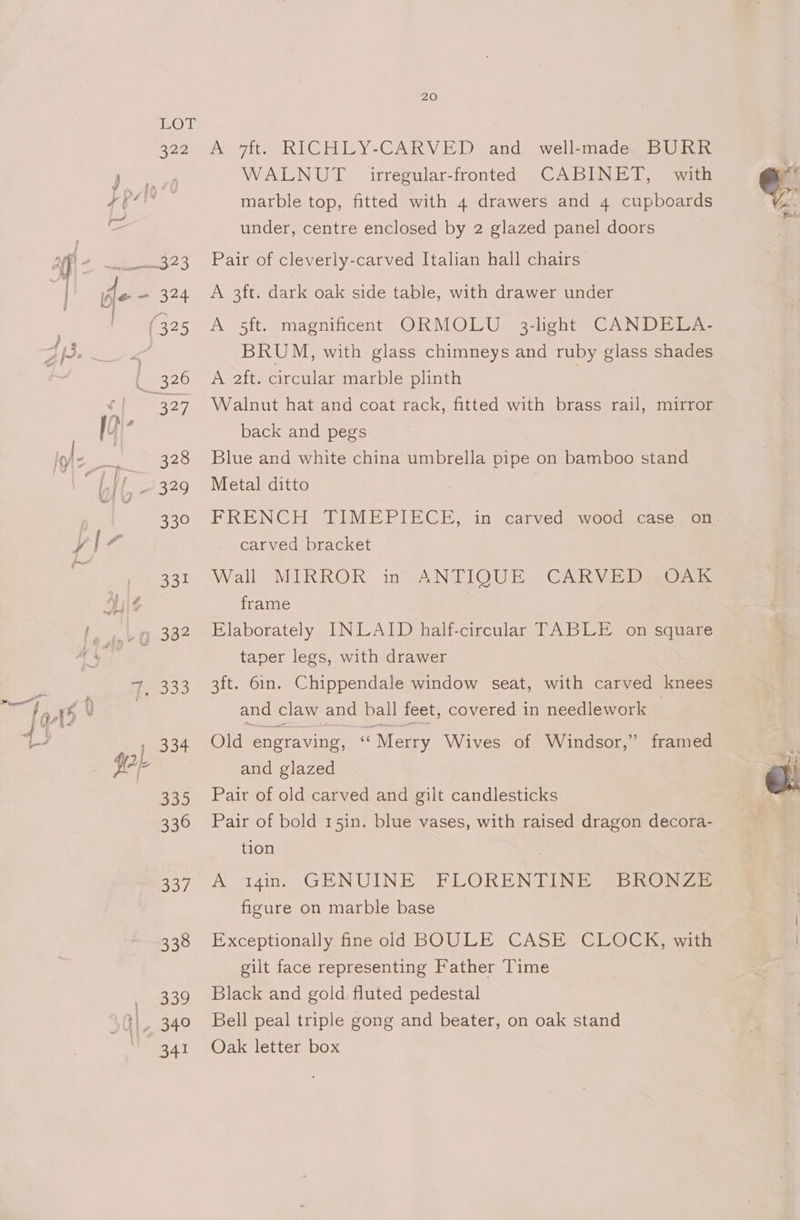 20
LOT
322 A 7ft. RICHLY-CARVED and well-made BURR
WALNUT irregular-fronted CABINET, with
marble top, fitted with 4 drawers and 4 cupboards
under, centre enclosed by 2 glazed panel doors
323 Pair of cleverly-carved Italian hall chairs
324 A 3ft. dark oak side table, with drawer under
325 A 5ft. magnificent ORMOLU 3-light CANDELA-
BRUM, with glass chimneys and ruby glass shades
326 A 2ft. circular marble plinth
327 Walnut hat and coat rack, fitted with brass rail, mirror
back and pegs
328 Blue and white china umbrella pipe on bamboo stand
329 Metal ditto
330 FRENCH TIMEPIECE, in carved wood case on
carved bracket
331 Wall MIRROR in ANTIQUE CARVED OAK
frame
332 Elaborately INLAID half-circular TABLE on square
taper legs, with drawer
333 3ft. 6in. Chippendale window seat, with carved knees
and claw and ball feet, covered in needlework
334 Old engraving, “Merry Wives of Windsor,” framed
and glazed
335 Pair of old carved and gilt candlesticks
336 Pair of bold 15in. blue vases, with raised dragon decora-
tion
337 A 14in. GENUINE FLORENTINE BRONZE
figure on marble base
338 Exceptionally fine old BOULE CASE CLOCK, with
gilt face representing Father Time
339 Black and gold fluted pedestal
340 Bell peal triple gong and beater, on oak stand
341 Oak letter box